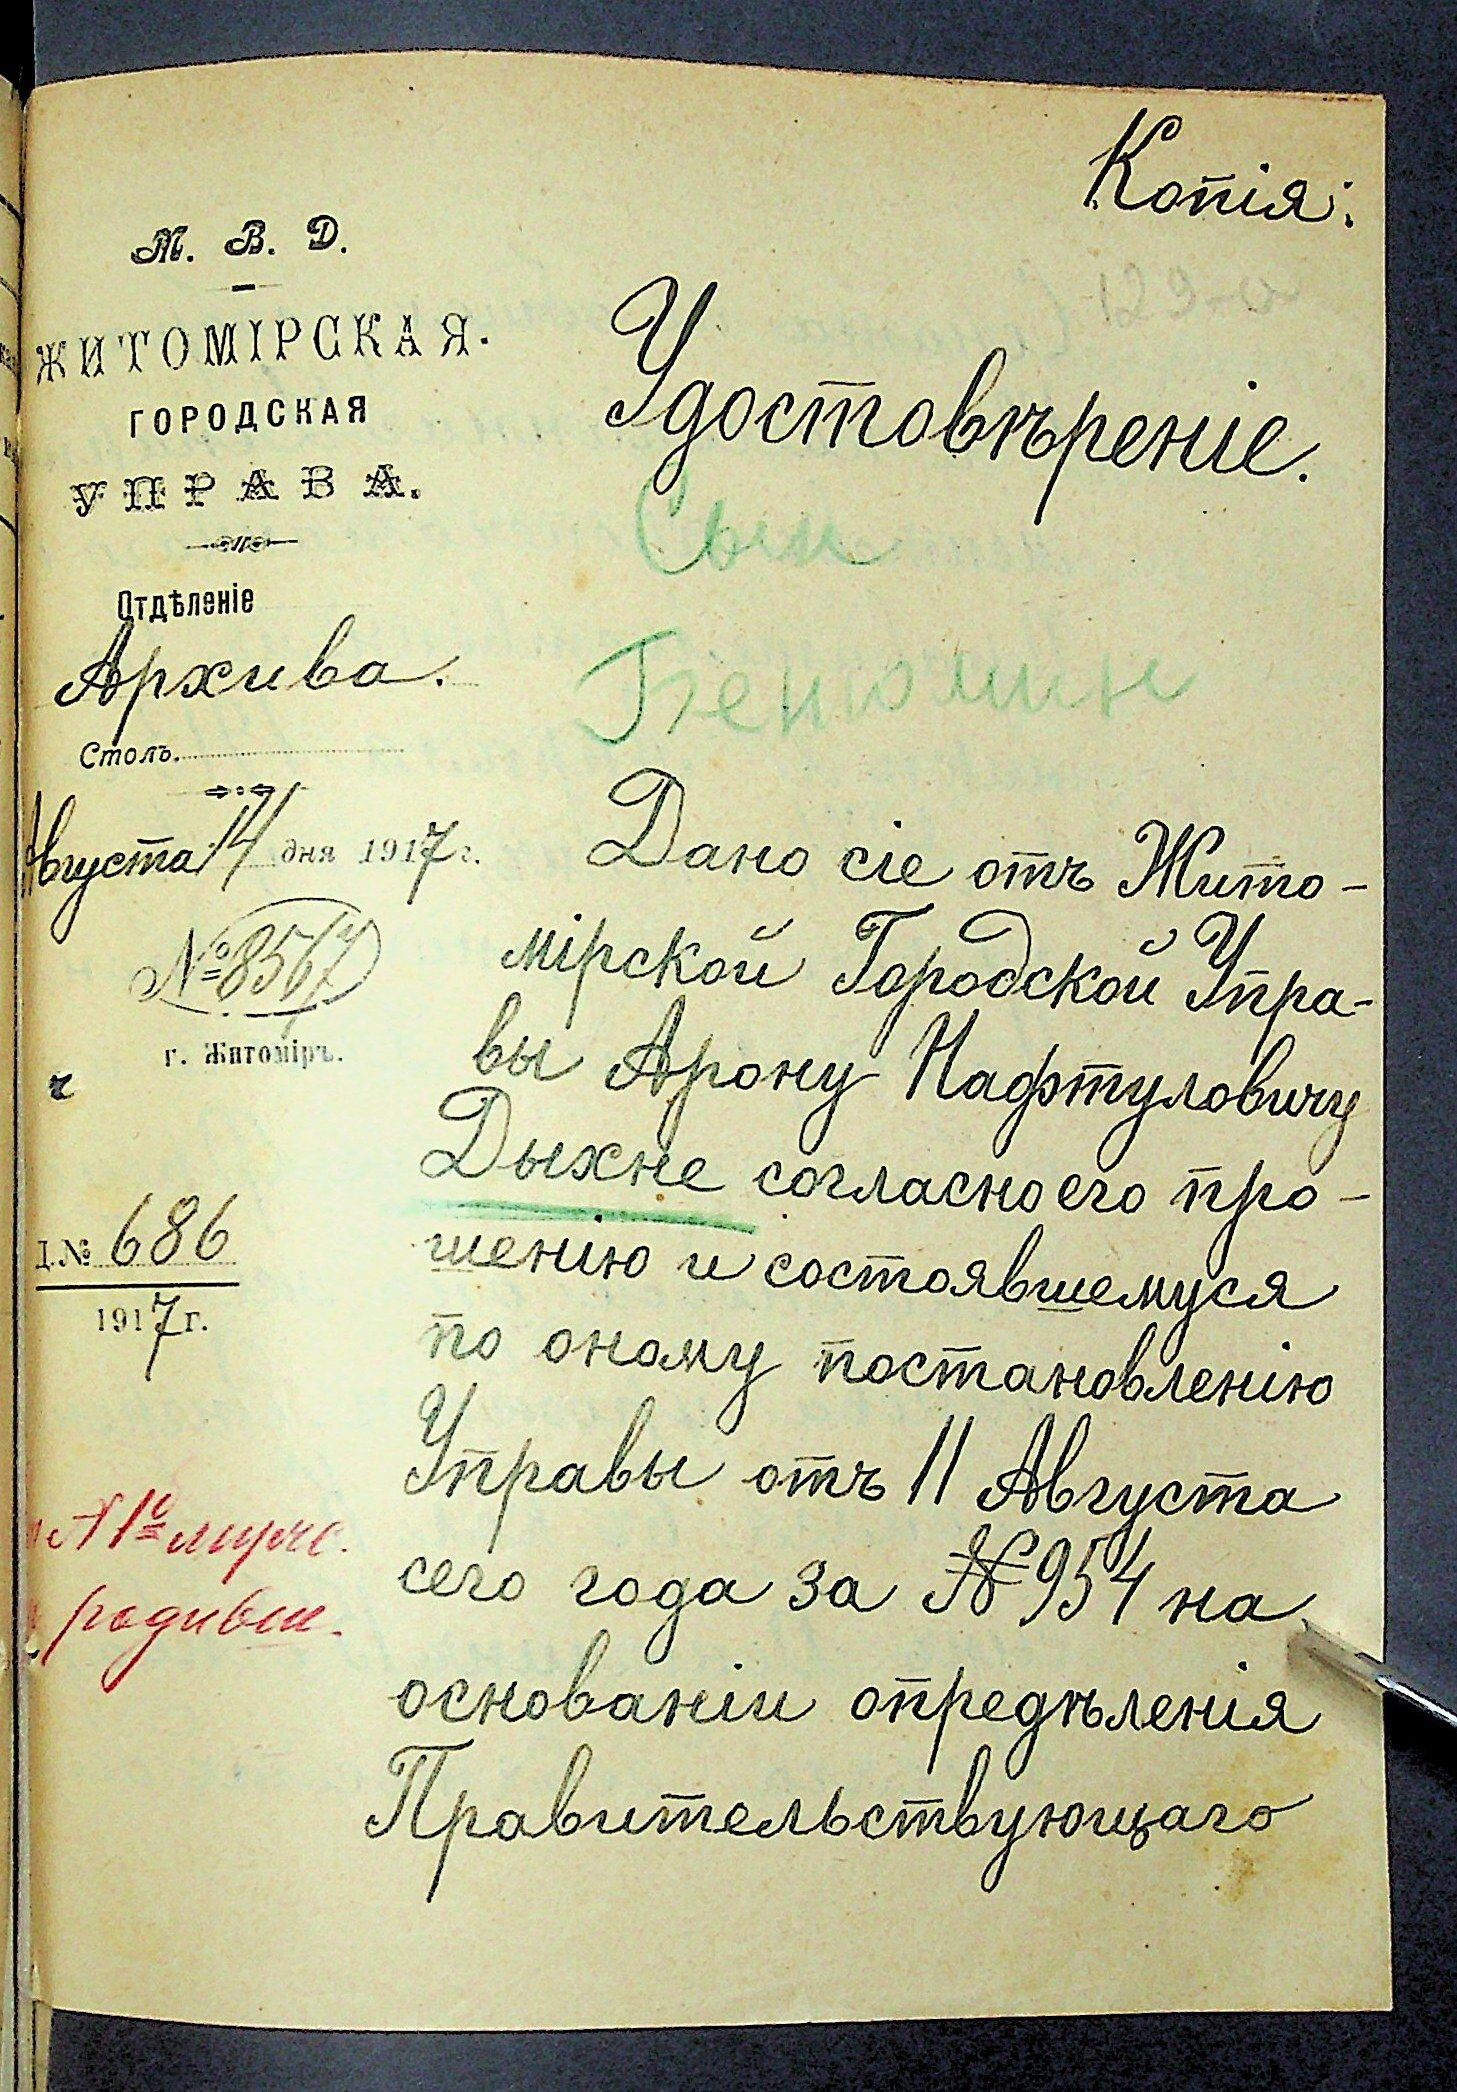 Копія:
М. В. Д.
ЖИТОМІРСКАЯ.
ГОРОДСКАЯ
УПРАВА.
Отдѣленіе
Архива.
Столъ.
Августа 14 дня 1917 г.
№ 8567
г. Житоміръ.
Д. № 686
1917 г.
родивш.
Удостовѣреніе.
Сын
Бениомин
Дано сіе отъ Жито-
мірской Городской Упра-
вы Арону Нафтуловичу
Дыхне согласно его про-
шенію и состоявшемуся
по оному постановленію
Управы отъ 11 Августа
сего года за № 954 на
основаніи опредѣленія
Правительствующаго